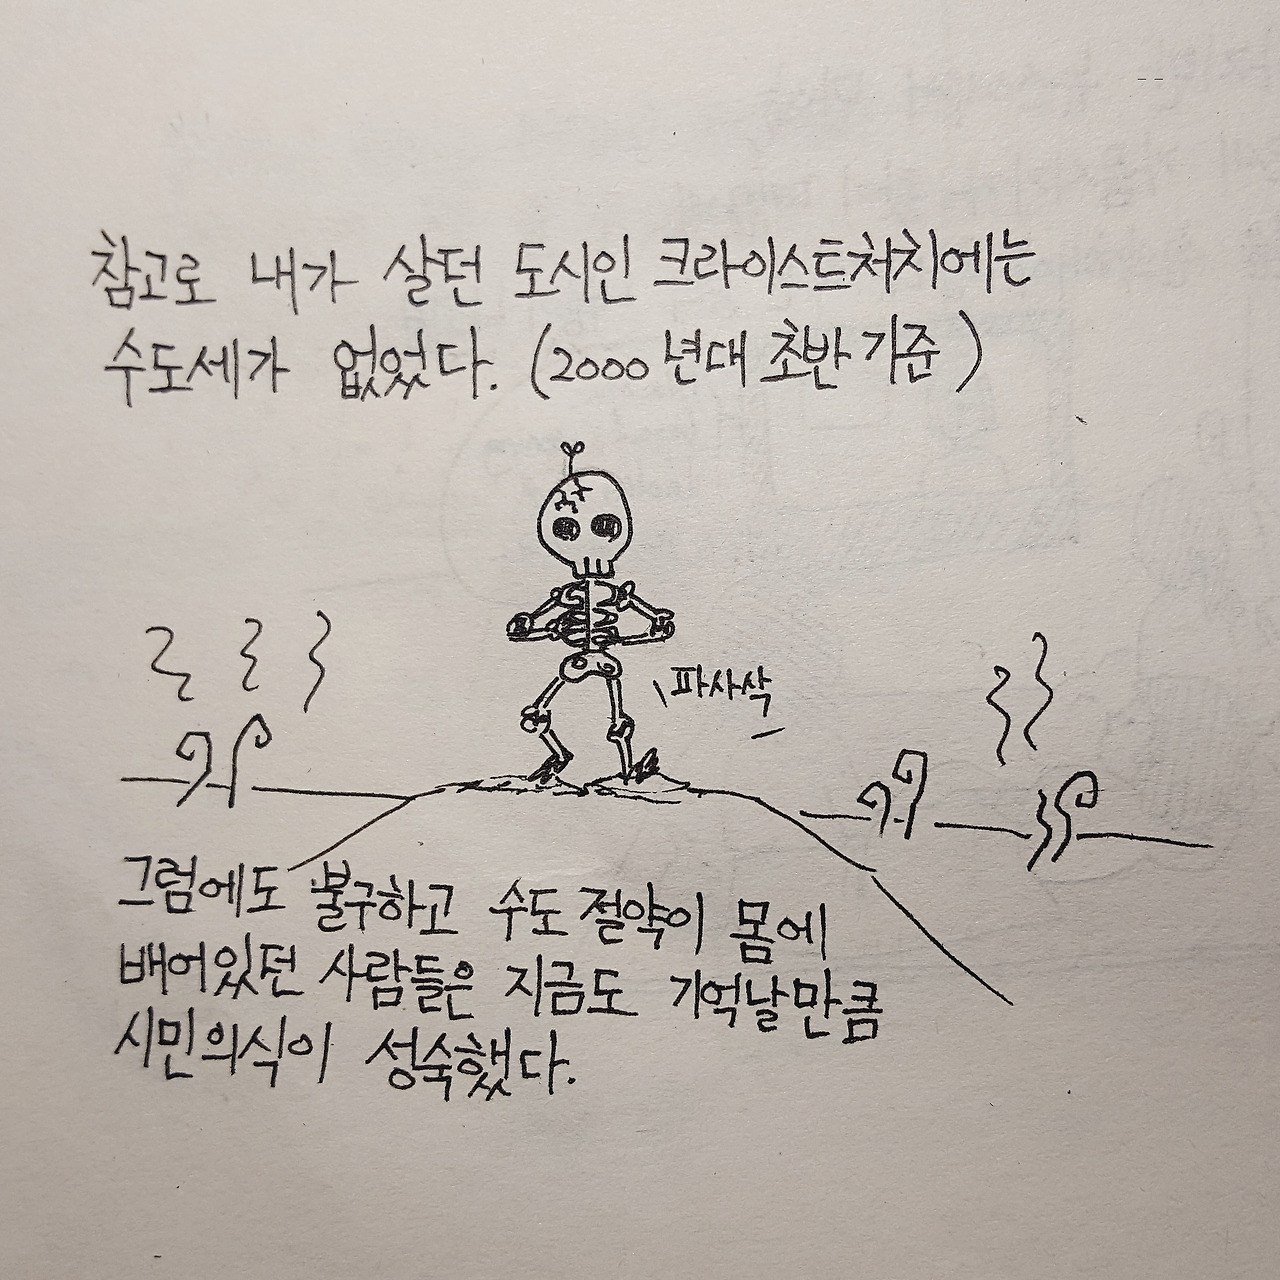 참고로 내가 살던 도시인 크라이스트처치에는
수도세가 없었다. (2000년대 초반 기준)
파사삭
그럼에도 불구하고 수도 절약이 몸에
배어있던 사람들은 지금도 기억날만큼
시민의식이 성숙했다.